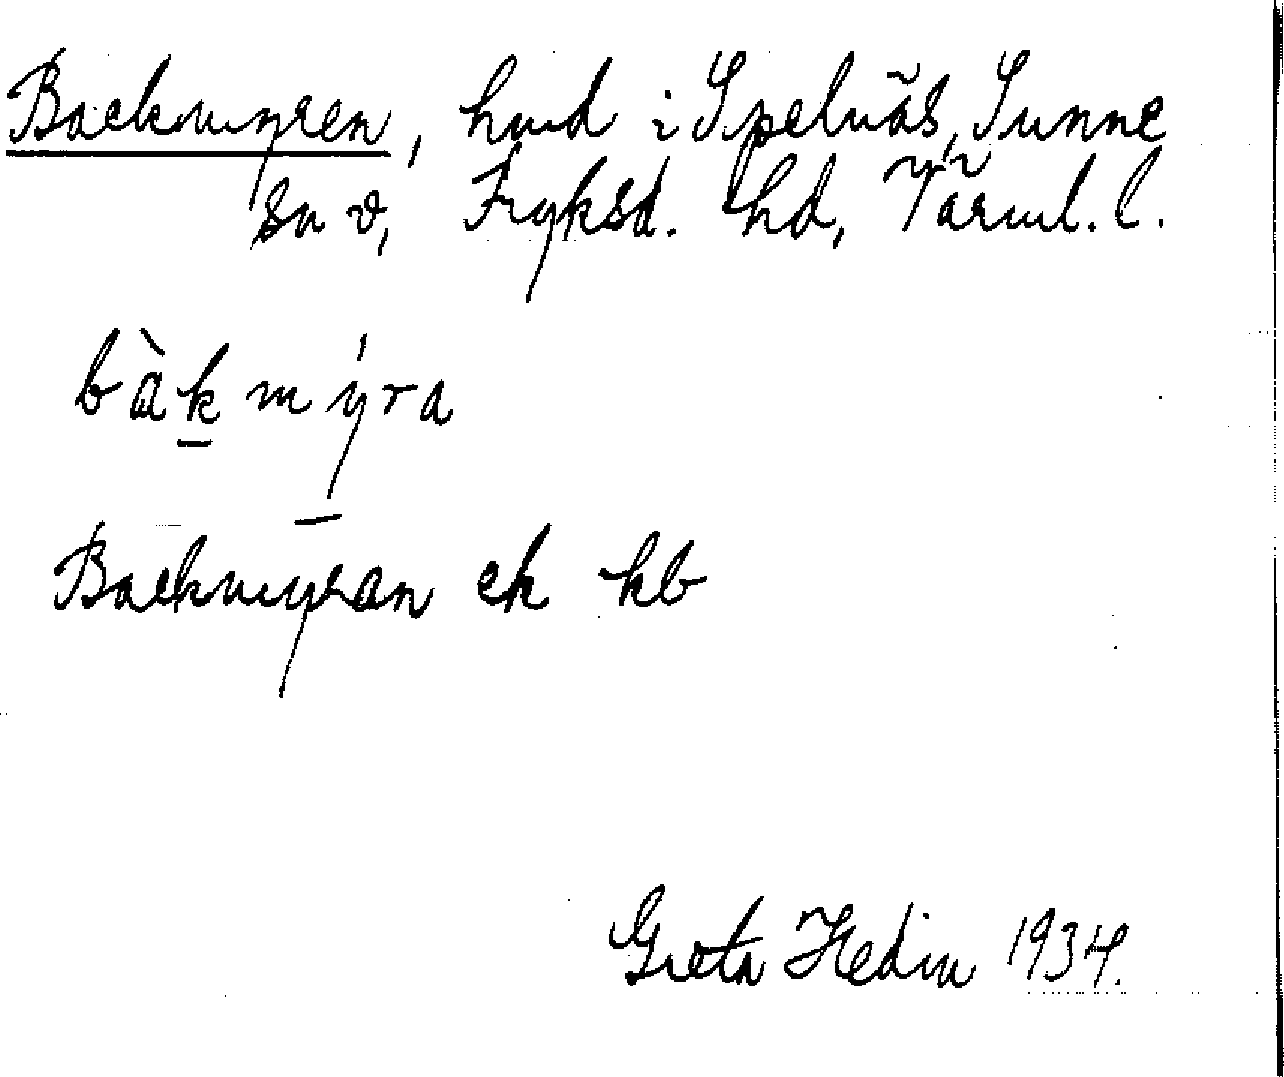 Backmyren, hmd i Spelnäs, Sunne
sn o, Fryksd. hd, Värml. l.
bàkmýra
Backmyran ek kb
Greta Hedin 1934.